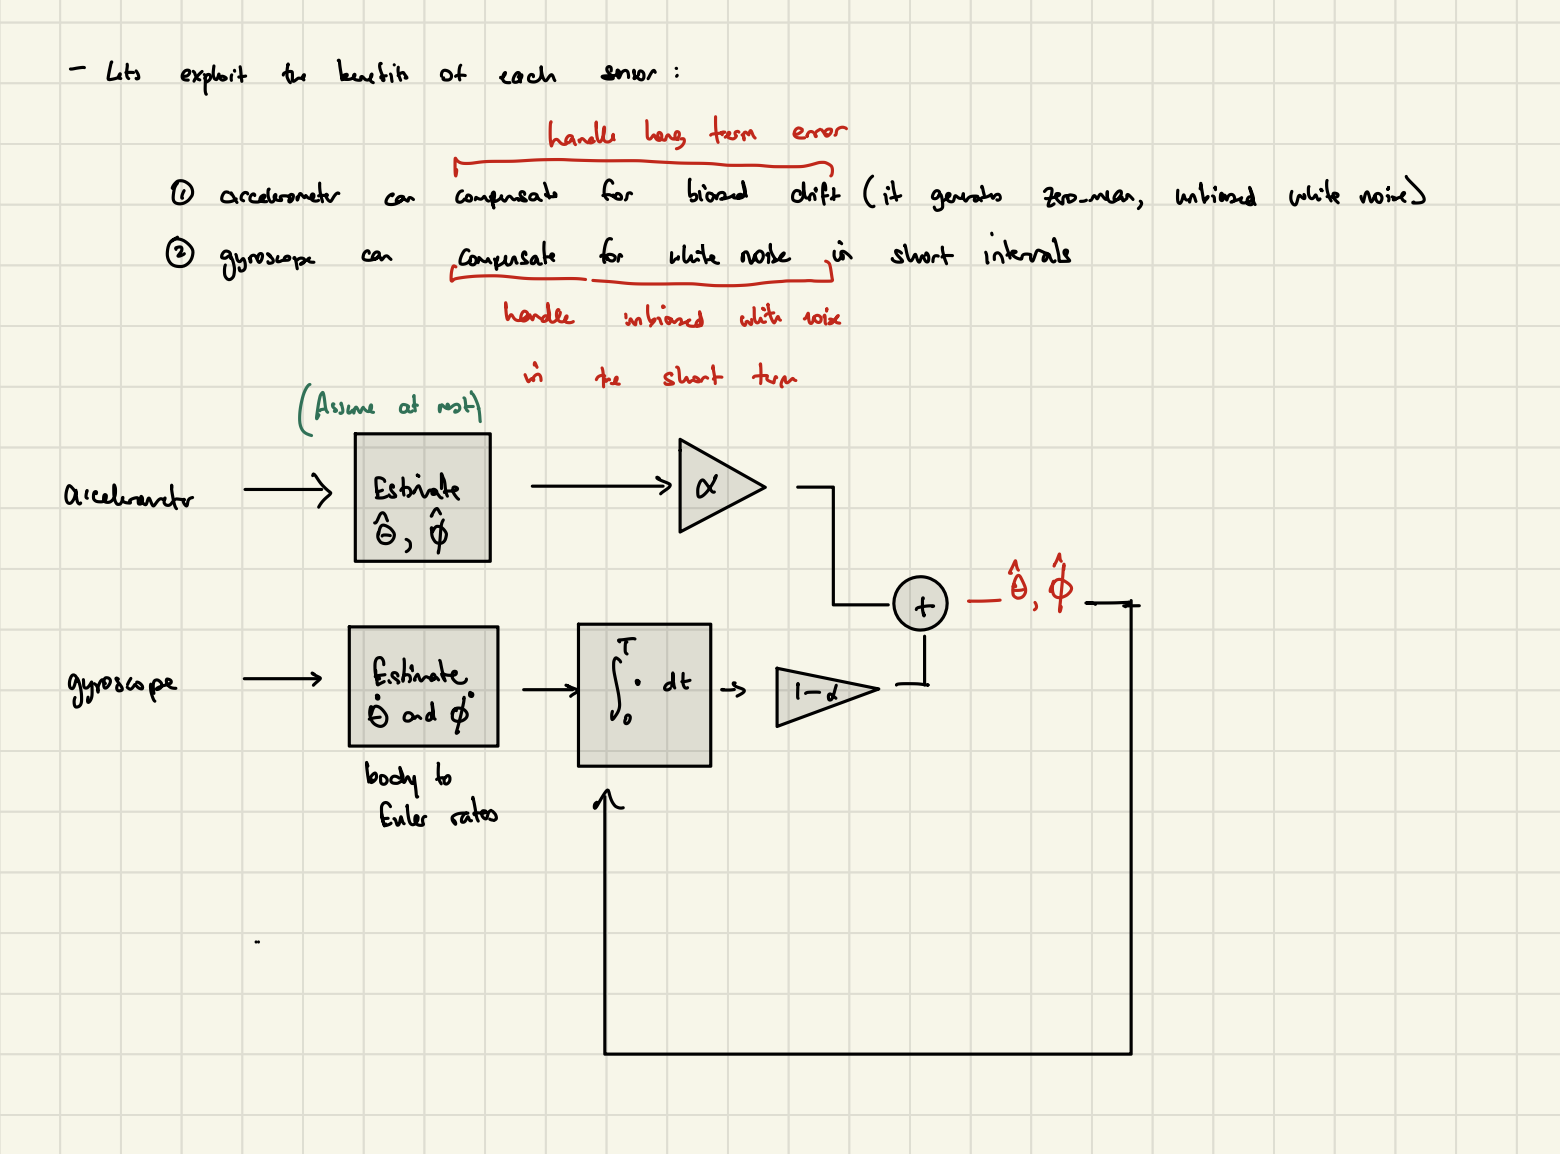 - Lets exploit the benefits of each sensor:
handle long term error
① accelerometer can compensate for biased drift (it generates zero-mean, unbiased white noise)
② gyroscope can compensate for white noise in short intervals
handle unbiased white noise
in the short term
(Assume at rest)
accelerometer
Estimate
θ̂, ϕ̂
α
θ̂, ϕ̂
+
gyroscope
Estimate
θ̇ and ϕ̇
∫₀ᵀ · dt
1-α
body to
Euler rates